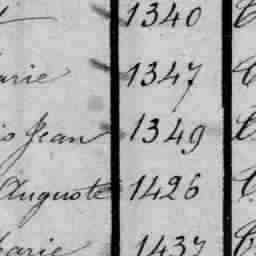 1340
arie 1347
s Jean 1349
Auguste 1426
arie 1437